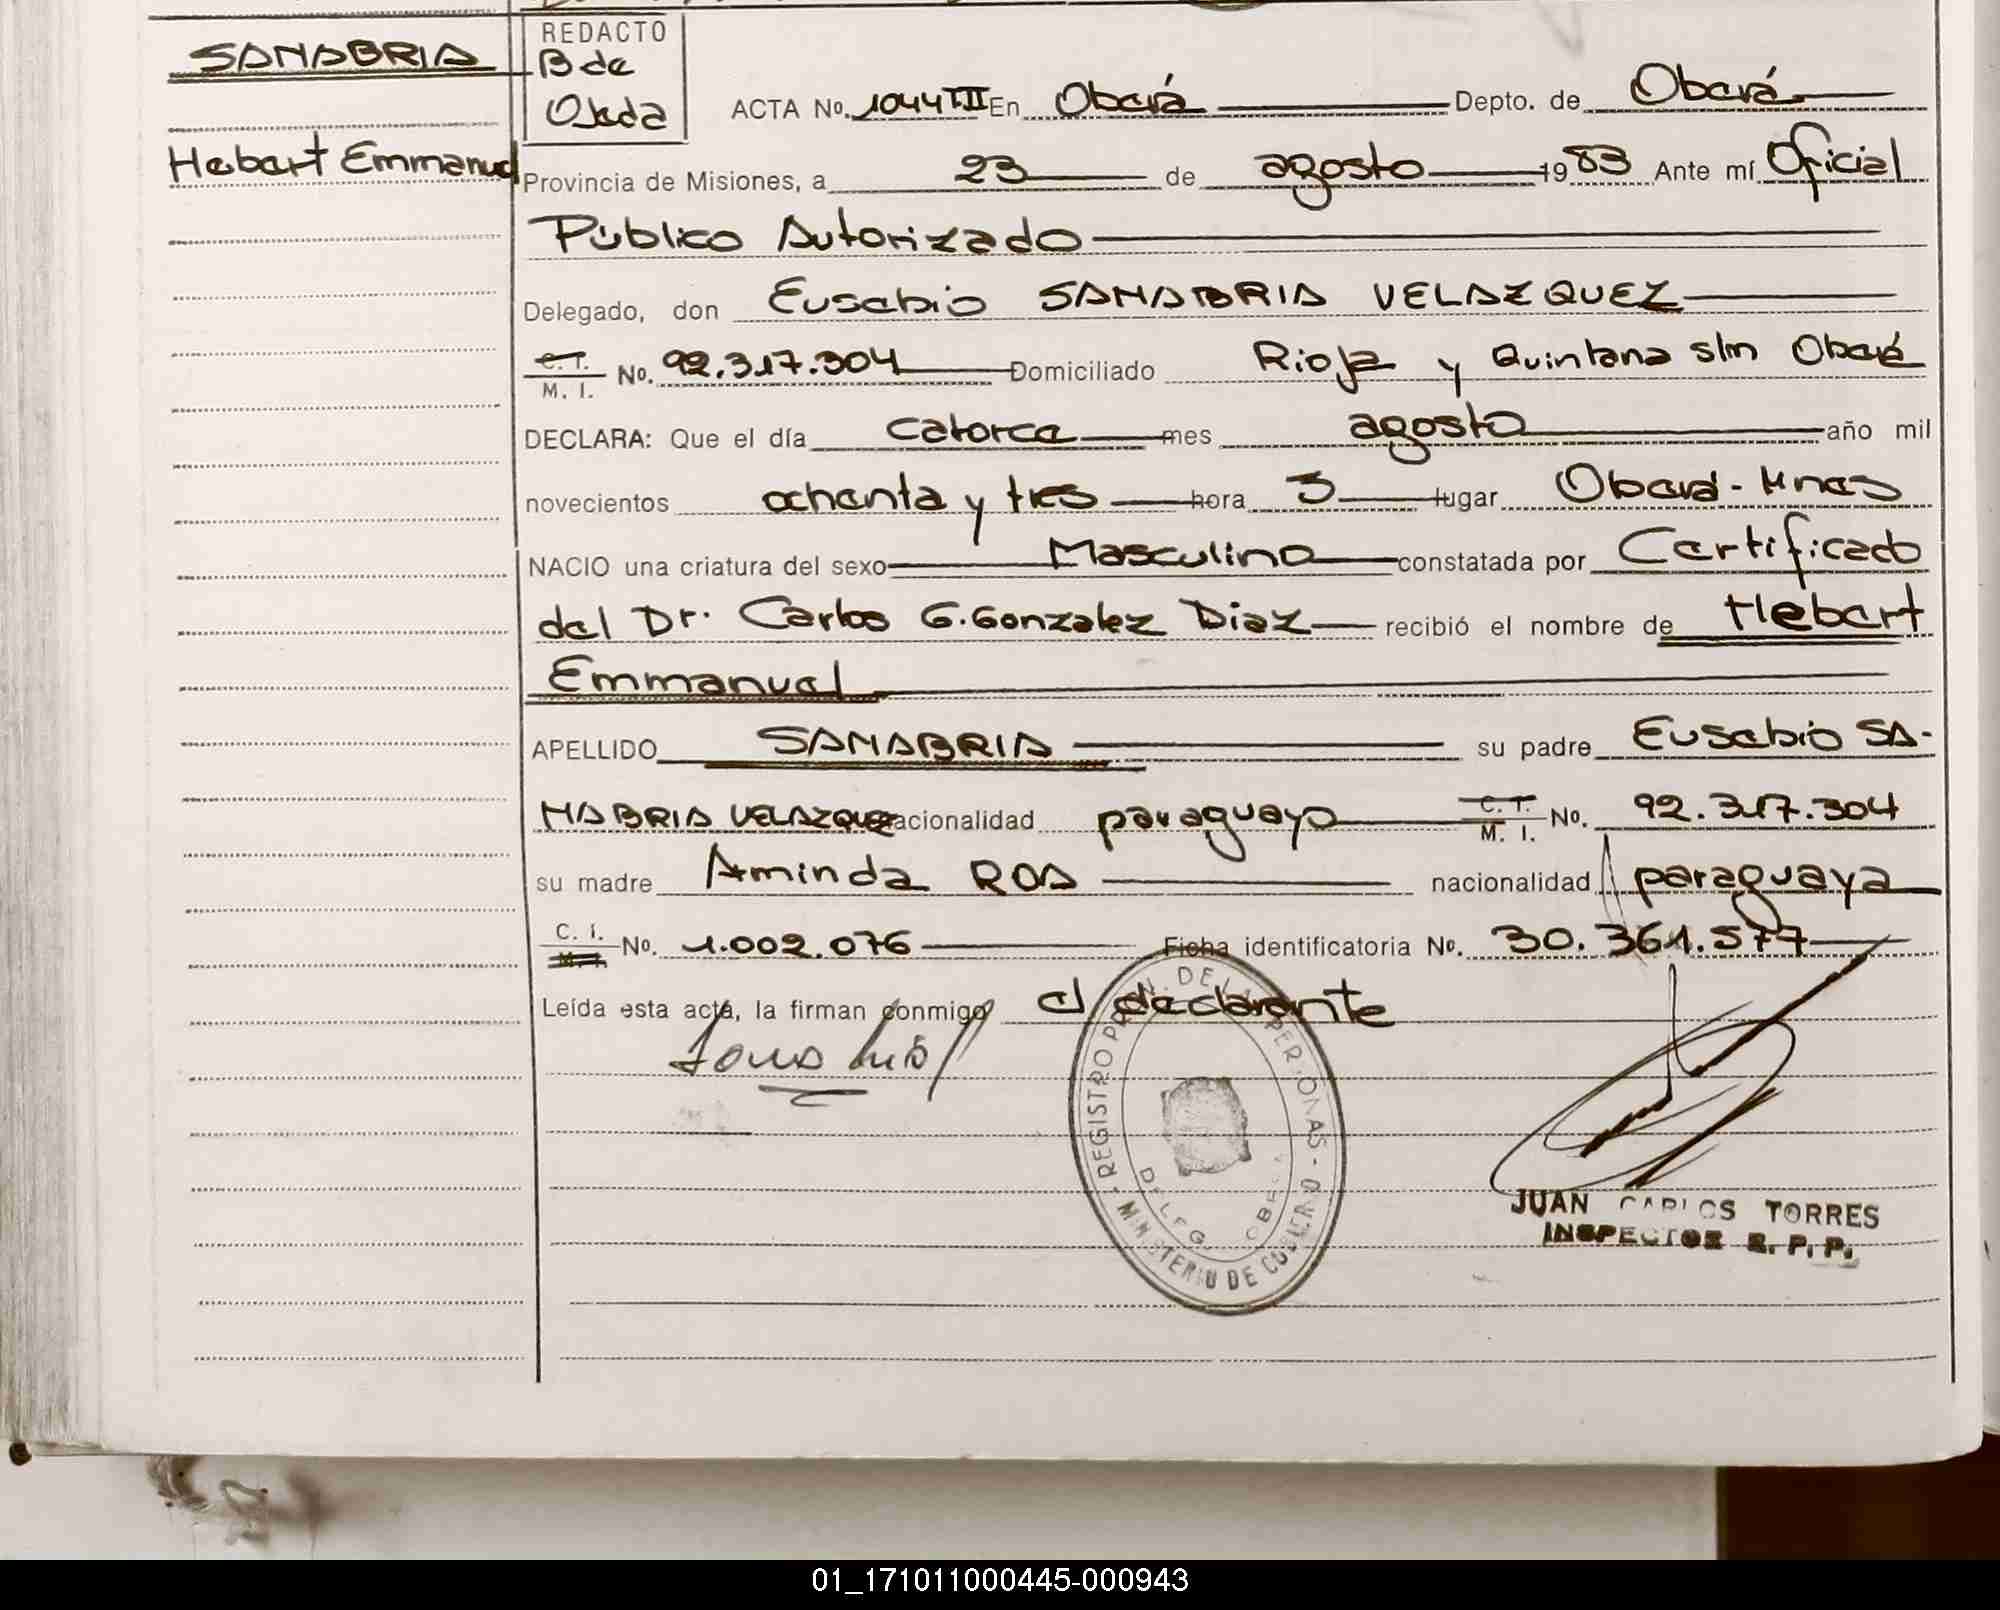 SANABRIA
Hebert Emmanuel
REDACTO
B de
Ojeda
ACTA No. 1044 T.II En Oberá Depto. de Oberá
Provincia de Misiones, a 23 de agosto 1983 Ante mí Oficial
Público Autorizado
Delegado, don Eusebio SANABRIA VELAZQUEZ
C. I. M. I. No. 92.317.304 Domiciliado Rioja y Quintana s/n Oberá
DECLARA: Que el día catorce mes agosto año mil
novecientos ochenta y tres hora 3 lugar Oberá - Mnes
NACIO una criatura del sexo Masculino constatada por Certificado
del Dr. Carlos G. Gonzalez Diaz recibió el nombre de Hebert
Emmanuel
APELLIDO SANABRIA su padre Eusebio SA-
NABRIA VELAZQUEZ nacionalidad paraguayo C. I. M. I. No. 92.317.304
su madre Aminda ROA nacionalidad paraguaya
C. I. M. I. No. 1.002.076 Ficha identificatoria No. 30.361.577
Leída esta acta, la firman conmigo el declarante
REGISTRO PROVIN. DE LAS PERSONAS - MINISTERIO DE GOBIERNO -
DELEG. OBERA
JUAN CARLOS TORRES
INSPECTOR R. P. P.
01_171011000445-000943